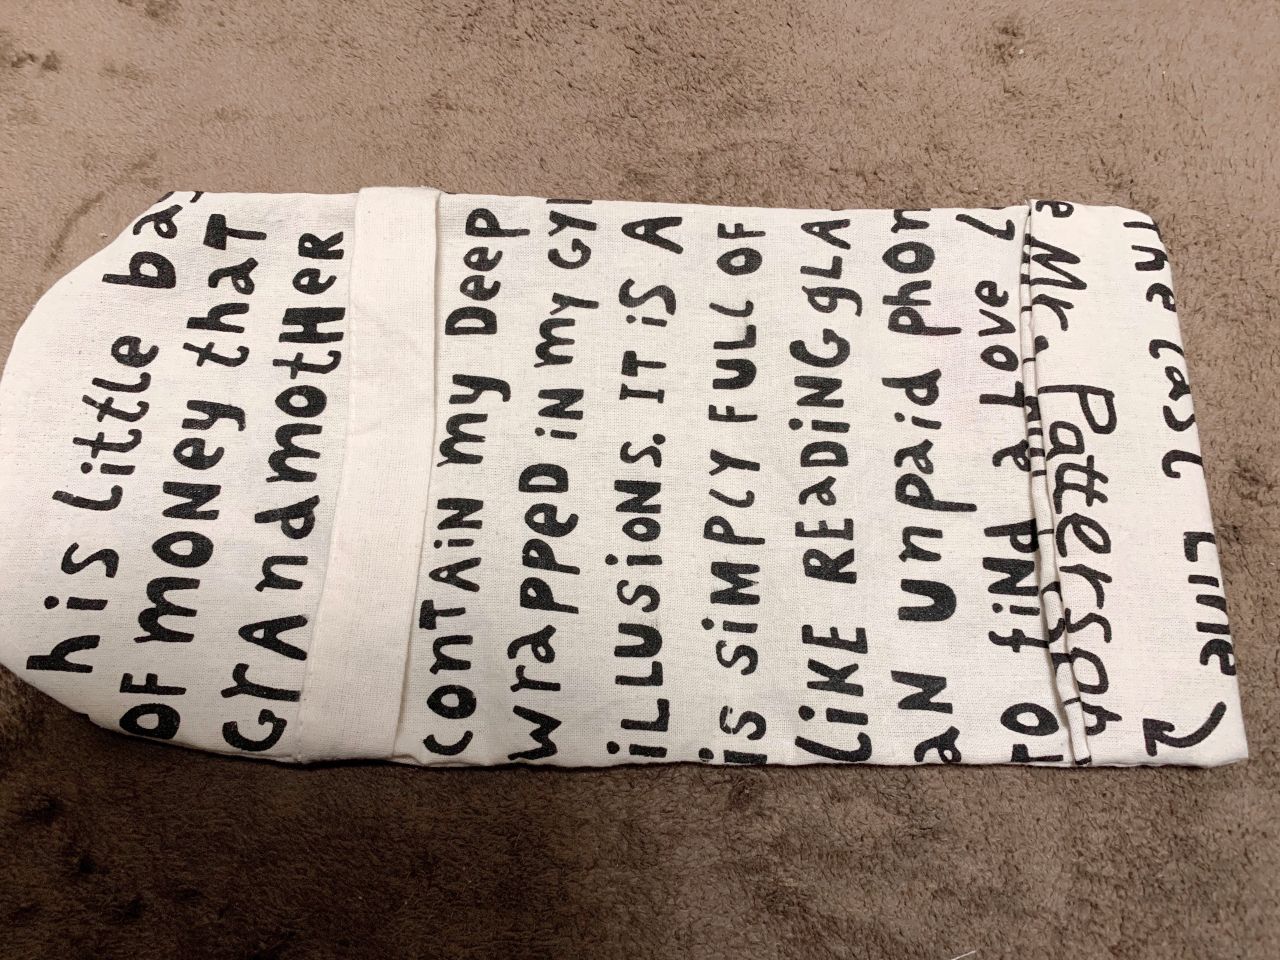 his little ba
OF mONey that
GrAndmotHeR
conTAiN my Deep
wrapped iN my GY
iLLUSioNS. IT iS A
is SiMPLY FULL OF
LiKE REaDiNG gLA
aN unpaid phon
TO fiND a Love L
e Mr. Patterson
the last Line